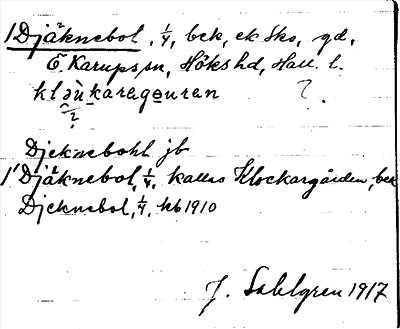 1 Djäknebol, 1/4, bek, ek. Sko, gd,
Ö. Karups sn, Höks hd, Hall. l.
klɔ̀ukaragɵuran ?.
?
Djeknebohl jb
1' Djäknebol, 1/4, kallas Klockargården, bek
Djeknebol, 1/4, kb 1910
J. Sahlgren 1917